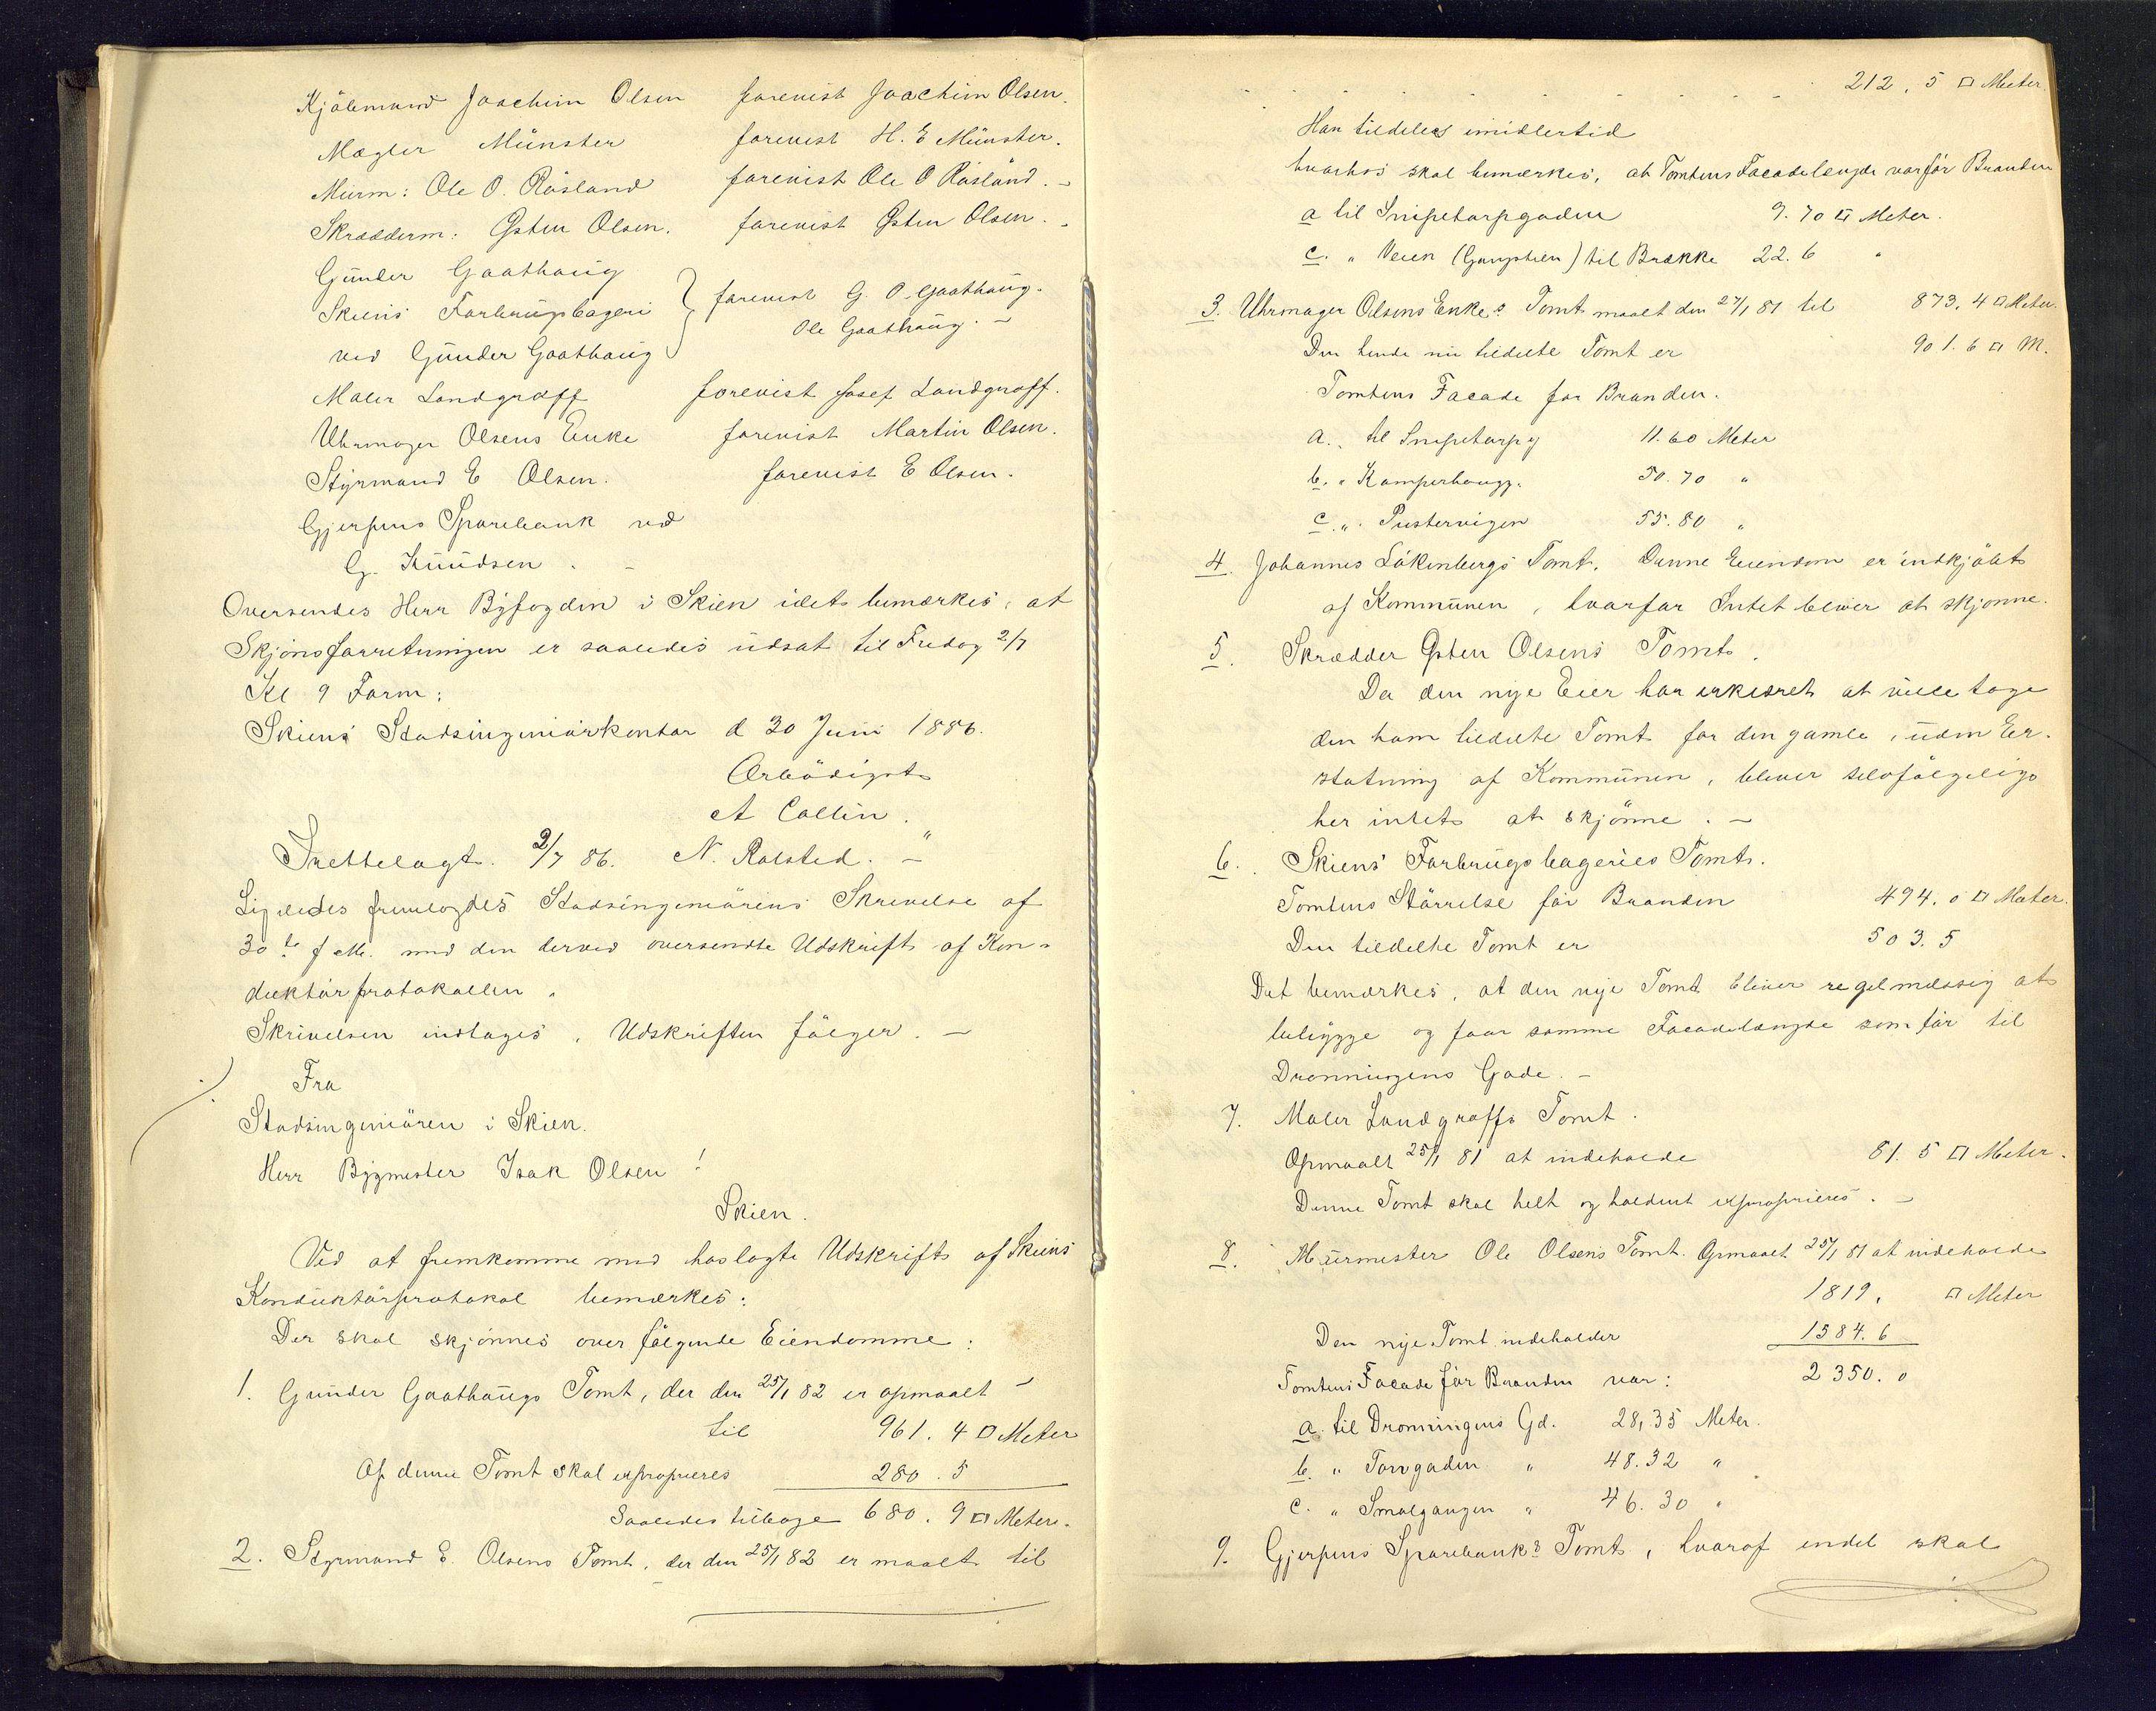 Kjöbmand Joachim Olsen forevist Joachim Olsen.
Mægler Münster forevist H. E Münster.
Murm: Ole O. Råsland forevist Ole O Råsland. –
Skrædderm: Østen Olsen. forevist Østen Olsen. –
Günder Gaathaüg
Skiens Forbrugsbageri forevist G. O. Gaathaüg.
ved Günder Gaathaug Ole Gaathaüg. –
Maler Landgraff forevist Josef Landgraff.
Uhrmager Olsens Enke forevist Martin Olsen.
Styrmand E Olsen. forevist E Olsen.
Gjerpens Sparebank ved
G. Knüdsen. –
Oversendes Herr Byfogden i Skien idet bemærkes, at
Skjönsforretningen er saaledes udsat til Fredag 2/7
Kl 9 Form:
Skiens Stadsingeniörkontor d 30 Juni 1886.
Ærbödigst
A Collin.
Irettelagt. 2/7 86. N. Rolsted. –"
Ligeledes fremlagdes Stadsingeniörens Skrivelse af
30te f M. med den derved oversendte Udskrift af Kon-
düktörprotokollen.
Skrivelsen indtages, Udskriften fölger. –
Fra
Stadsingeniören i Skien.
Herr Bygmester Isak Olsen!
Skien.
Ved at fremkomme med hoslagte Udskrift af Skiens
Konduktörprotokol bemærkes:
Der skal skjönnes over fölgende Eiendomme:
1. Günder Gaathaügs Tomt, der den 25/1 82 er opmaalt –
til 961. 4 □ Meter
Af denne Tomt skal exproprieres 280. 5
Saaledes tilbage 680. 9 □ Meter.
2. Styrmand E. Olsens Tomt, der den 25/1 82 er maalt til
212, 5 □ Meter.
Han tildeles imidlertid
hvorhos skal bemærkes, at Tomtens Facadelængde var för Branden
a til Snipetorpgaden 9. 70 □ Meter.
c. " Veien (Gangstien) til Brække 22. 6 "
3. Uhrmager Olsens Enkes Tomt maalt den 27/1 81 til 873. 4 □ Meter.
Den hende nu tildelte Tomt er 901. 6 □ M.
Tomtens Facade for Branden.
a. til Snipetorpg 11. 60 Meter
b. " Kamperhougg. 50. 70 "
c. " Pustervigen 55. 80 "
4. Johannes Läkenbergs Tomt. Denne Eiendom er indkjöbt
af Kommünen, hvorfor Intet bliver at skjonne.
5. Skrædder Østen Olsens Tomt.
Da den nye Eier har erkläret at ville tage
den ham tildelte Tomt for den gamle, uden Er-
statning af Kommünen, bliver selvfölgelig
her intet at skjönne. –
6. Skiens Forbrugsbageries Tomt.
Tomtens Störrelse för Branden 494. 0 □ Meter.
Den tildelte Tomt er 503. 5
Det bemærkes, at den nye Tomt bliver regelmæssig at
bebygge og faar samme Facadelængde som för til
Dronningens Gade. –
7. Maler Landgraffs Tomt.
Opmaalt 25/1 81 at indeholde 81. 5 □ Meter.
Denne Tomt skal helt og holdent exproprieres. –
8. Mürmester Ole Olsens Tomt. Opmaalt 25/1 81 at indeholde
1819, □ Meter
Den nye Tomt indeholder 1584. 6
Tomtens Facade för Branden var: 2350. 0
a. til Dronningens Gd. 28,35 Meter.
b. " Torvgaden " 48. 32 "
c. " Smalgangen " 46. 30 "
9. Gjerpens Sparebanks Tomt, hvoraf endel skal